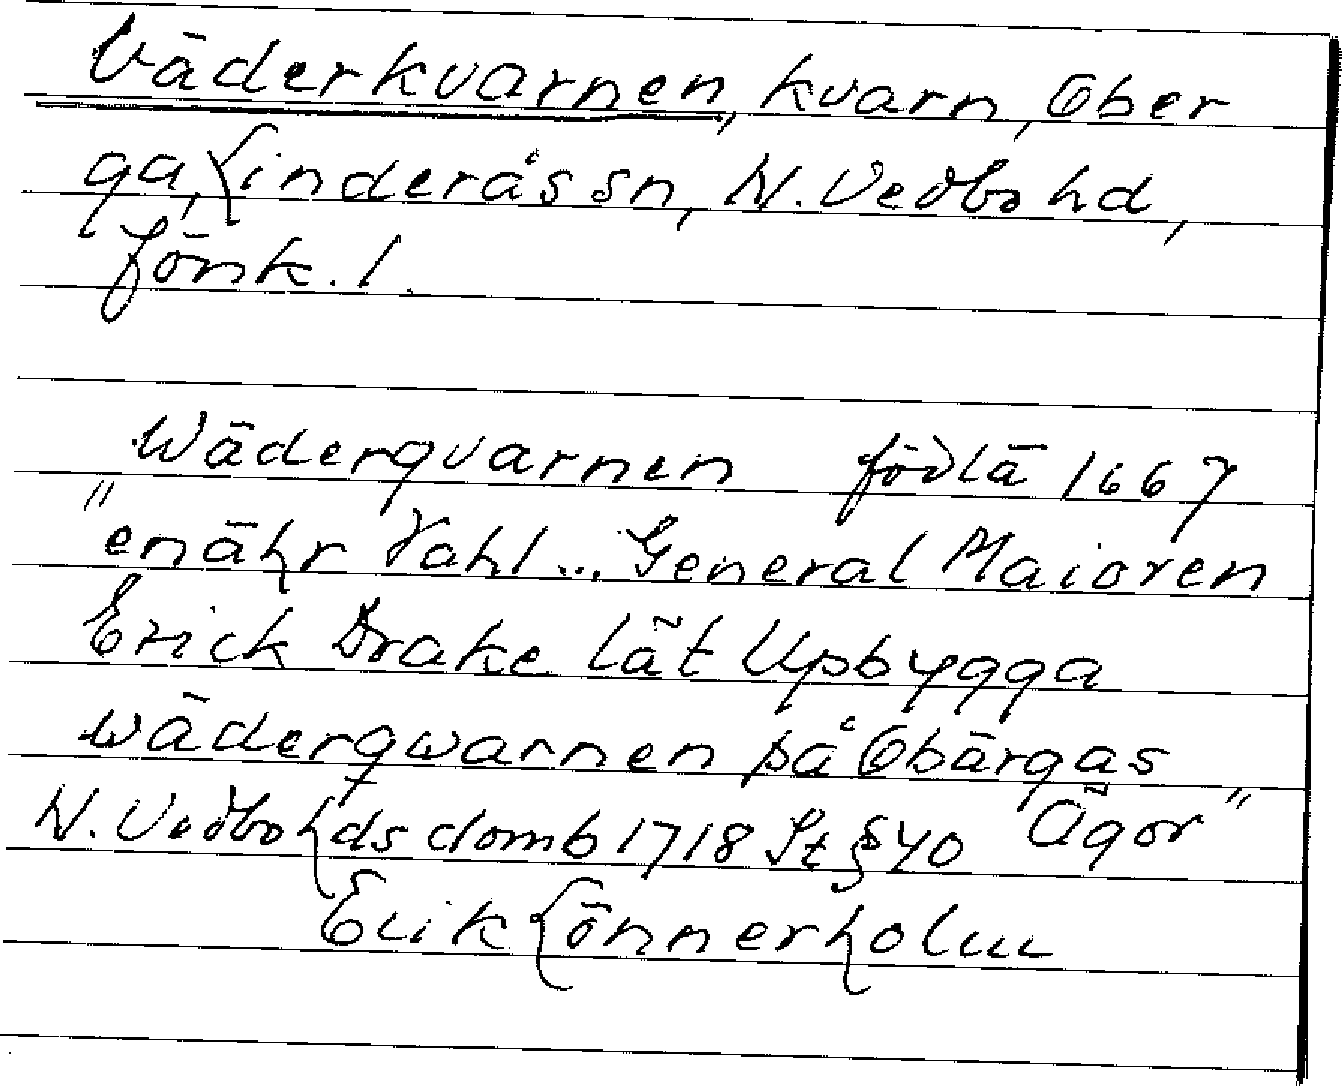 Väderkvarnen, kvarn, Ober
ga, Linderås sn, N. Vedbo hd,
Jönk. l.
Wäderqvarnen födlä 1667
"enähr Vahl... General Maioren
Erick Drake lät Upbygga
wäderqwarnen på Obärgas
Ägor"
N. Vedbo hds domb 1718 St § 40
Erik Lönnerholm